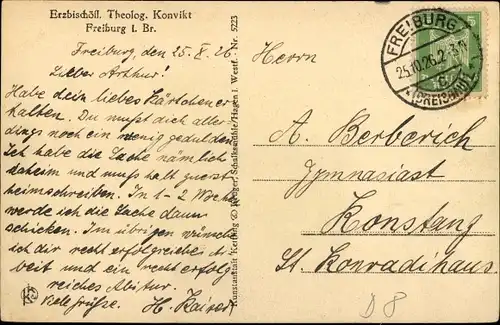 Erzbischöfl. Theolog. Konvikt
Freiburg i. Br.
Freiburg, den 25. X. 26
Lieber Arthur!
Habe dein liebes Kärtchen er
halten. Du mußt dich aller
dings noch ein wenig gedulden.
Ich habe die Sache nämlich
daheim und muß halt zuerst
heimschreiben. In 1-2 Woch
werde ich die Sache dann
schicken. Im übrigen wünsche
ich dir recht erfolgreiches Ar
beit und ein recht erfolg
reiches Abitur.
Viele Grüße. H. Kaiser
Kunstanstalt Kettling & Krüger, Schalksmühle/Hagen i. Westf. Nr. 5223
FREIBURG
25.10.26.2-3 N
(BREISGAU)
5
Herrn
A. Berberich
Gymnasiast
Konstanz
St. Konradihaus
D 8